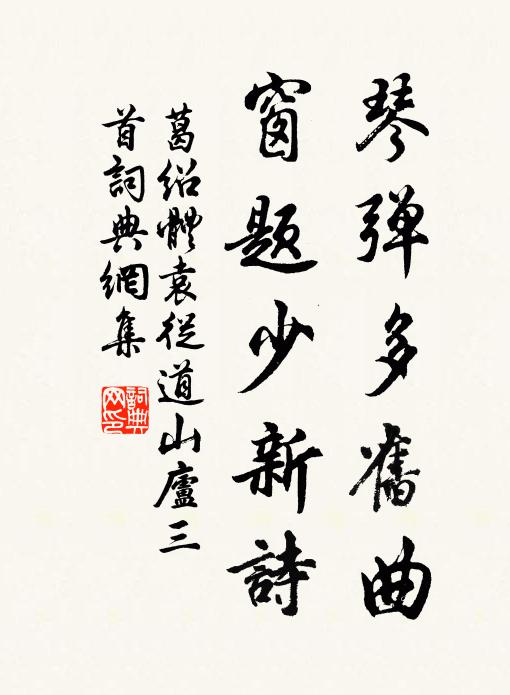 琴弹多舊曲
窗題少新詩
葛紹體袁從道山廬三
首詞典網集
詞典
网印